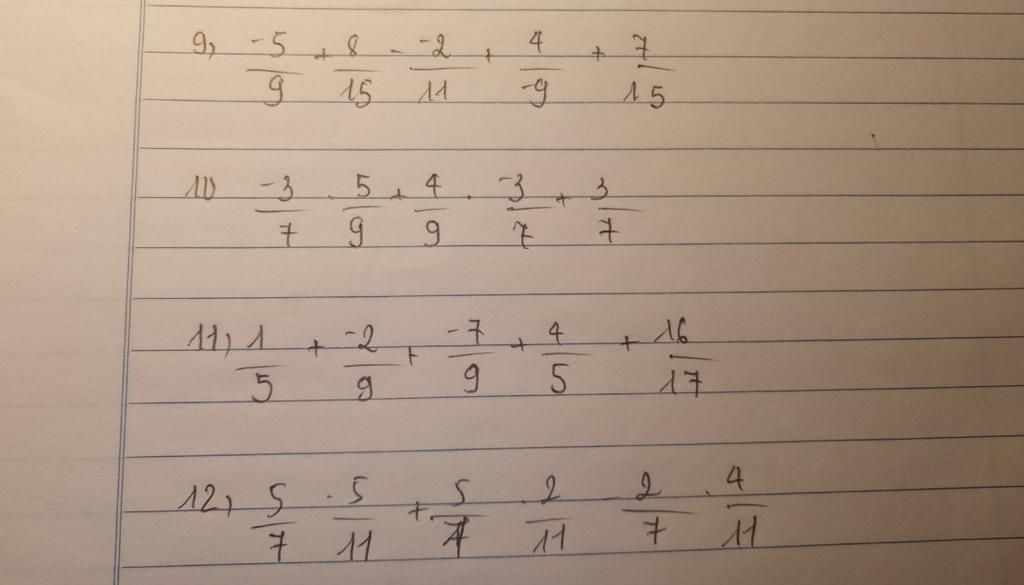 9, -5/9 + 8/15 - -2/11 + 4/-9 + 7/15
10 -3/7 . 5/9 + 4/9 . -3/7 + 3/7
11, 1/5 + -2/9 + -7/9 + 4/5 + 16/17
12, 5/7 . 5/11 + 5/7 . 2/11 - 2/7 . 4/11